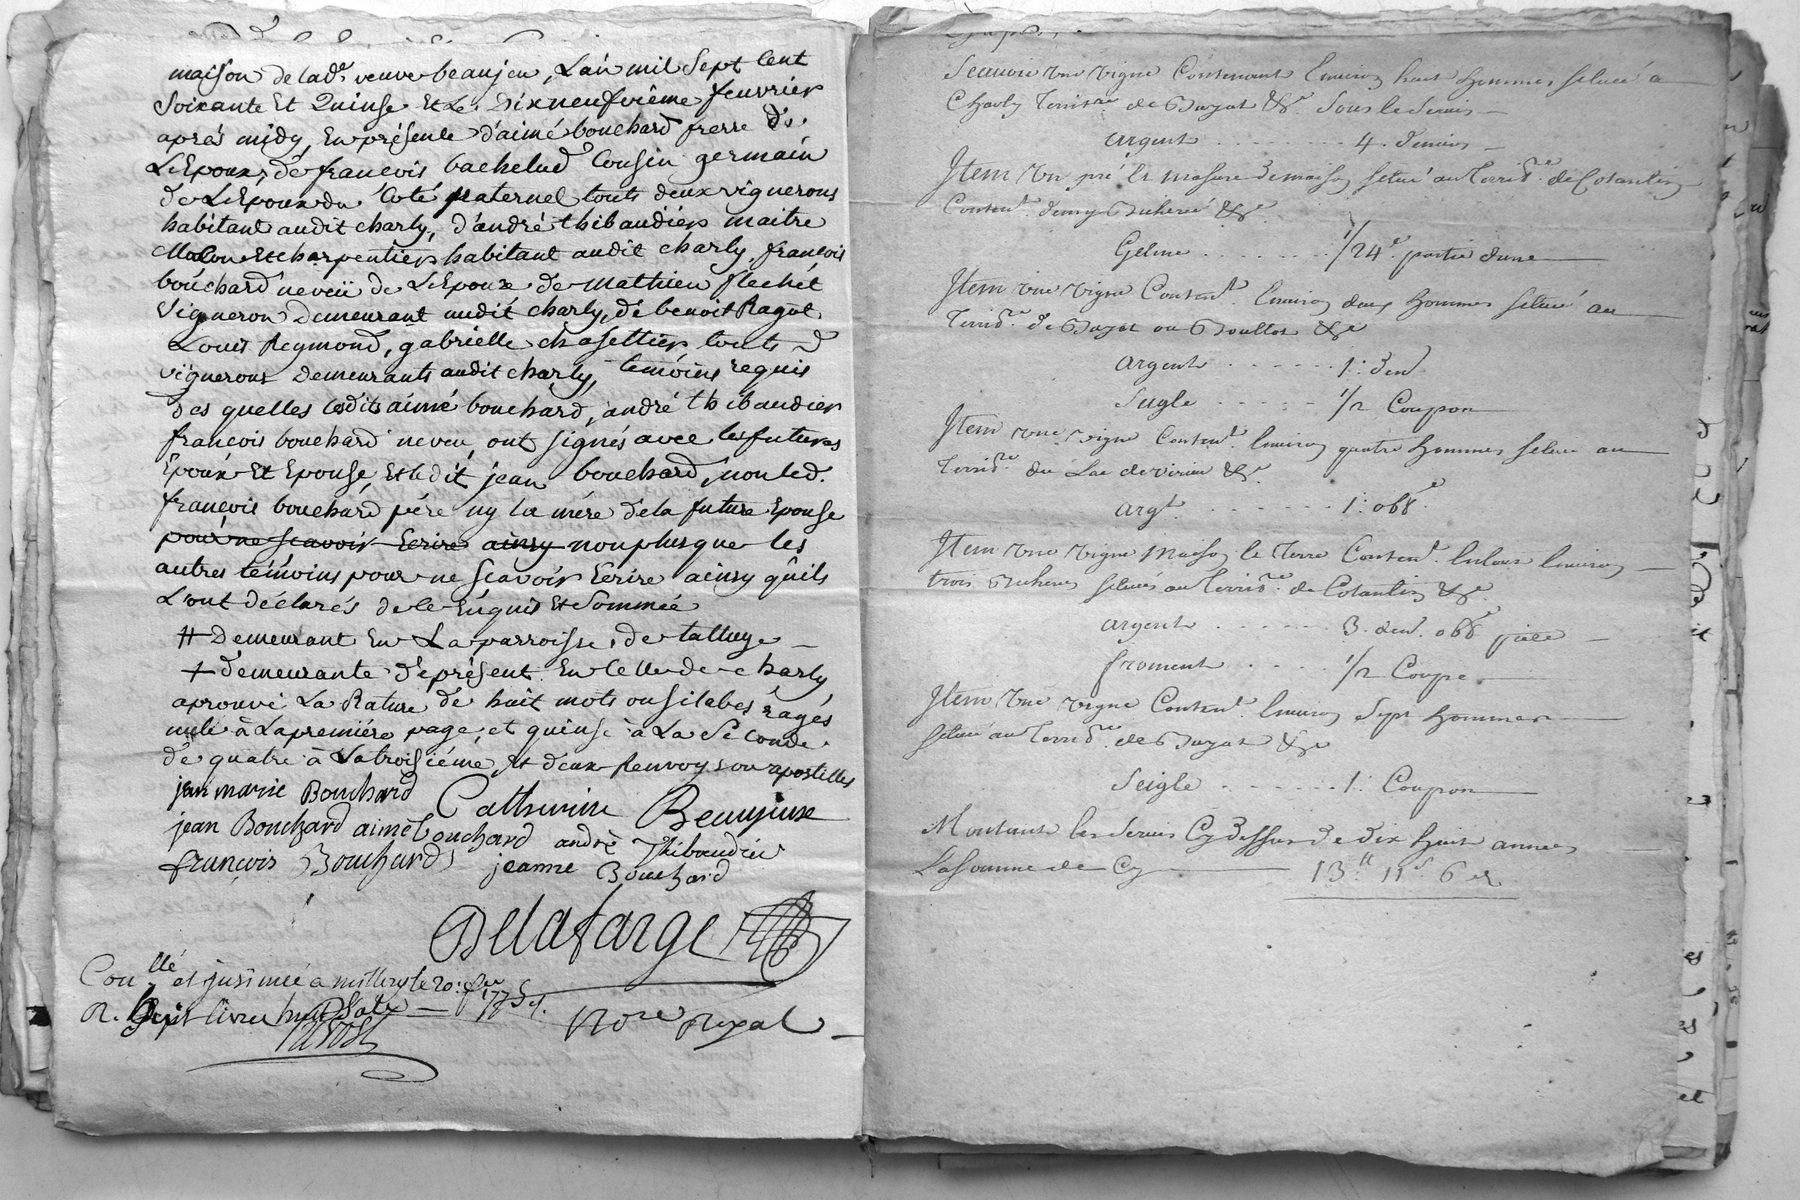 maison de lad.e veuve beaujeu, L'an mil Sept Cent
Soixante Et Quinse Et Le Dixneufvième feuvrier
aprés midy, En présence d'aimé bouchard frerre d.
L'Epoux, de françois bachelud Cousin germain
de L'Epoux du Coté paternel touts deux vignerons
habitant audit charly, d'andré thibaudier maitre
Masson et charpentier habitant audit charly, françois
bouchard neveü de L'Epoux de mathieu flechét
Vigneron Demeurant audit charly, de benoit Ragot
Louis Reymond, gabrielle chasettier touts
vignerons Demeurants audit charly, temóins requis
des quelles ledit aimé bouchard, andré thibaudier
françois bouchard neveu, ont signés avec les futures
Epoux Et Epouse, Et ledit jean bouchard, non led.
françois bouchard pére ny la mére de la future Epouse
pour ne scavoir Ecrire ainsy non plus que les
autres témoins pour ne scavoir Ecrire ainsy qu'ils
L'ont déclarés de ce Enquis Et Sommée
# Demeurant En La parroisse de talluye
+ demeurante de présent En celle de charly
aprouvé La Rature de huit mots ou silabes ragés
nulé à La premiére page, et quinse à La Seconde
de quatre à La troisiéme, et deux renvoys ou apostilles
jean marie Bouchard Catherine Beaujeux
jean Bouchard aimé bouchard andré Thibaudier
françois Bouchard jeanne Bouchard
Delafarge
Con.llé et insinué a millery le 20: f.er 1775
R. sept livres huit
No.re Royal
Scavoir une vigne Contenant Environ huit hommes située a
Charly Territ.re de Buyat &c.a Sous le Servis
argent . . . . . . . . 4. deniers
Item un pré et masure de maison situé au Territ.re de Cotantin
Conten.t demy Bicherée &c.a
Geline . . . . . . . 1/24.e partie d'une
Item une vigne Conten.t Environ deux hommes située au
Territ.re de Buyat ou Boullot &c.a
argent . . . . . . . 1: den.r
Seigle . . . . . . 1/2 Coupon
Item une vigne Conten.t Environ quatre hommes située au
Territ.re du Lac de virieu &c.a
arg.t . . . . . . . 1: ob.e
Item une vigne Maison et Terre Conten.t Environ
trois Bicherées situés au Territ.re de Cotantin &c.a
argent . . . . . . . 3. den.s ob.e pitte
froment . . . . . 1/2 Coupe
Item une vigne Conten.t Environ Sept hommes
située au Territ.re de Buyat &c.a
Seigle . . . . . . 1: Coupon
Montants les Servis Cy dessus de dix huit années
La Somme de Cy 13.tt 11.s 6 d